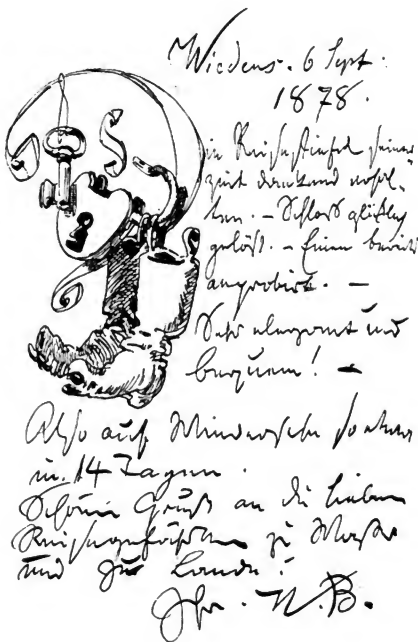 Wiedens. 6 Sept.
1878.
ie Reisestiefel seiner
Zeit dankend erhal-
ten. – Schloß glückl.
gelöst. – Einen bereits
anprobirt. –
Sehr elegant und
bequem! –
Also auf Wiedersehn
in 14 Tagen.
Schönen Gruß an die lieben
Reisegefährten zu Wasser
und zu Lande!
Ihr. W. B.